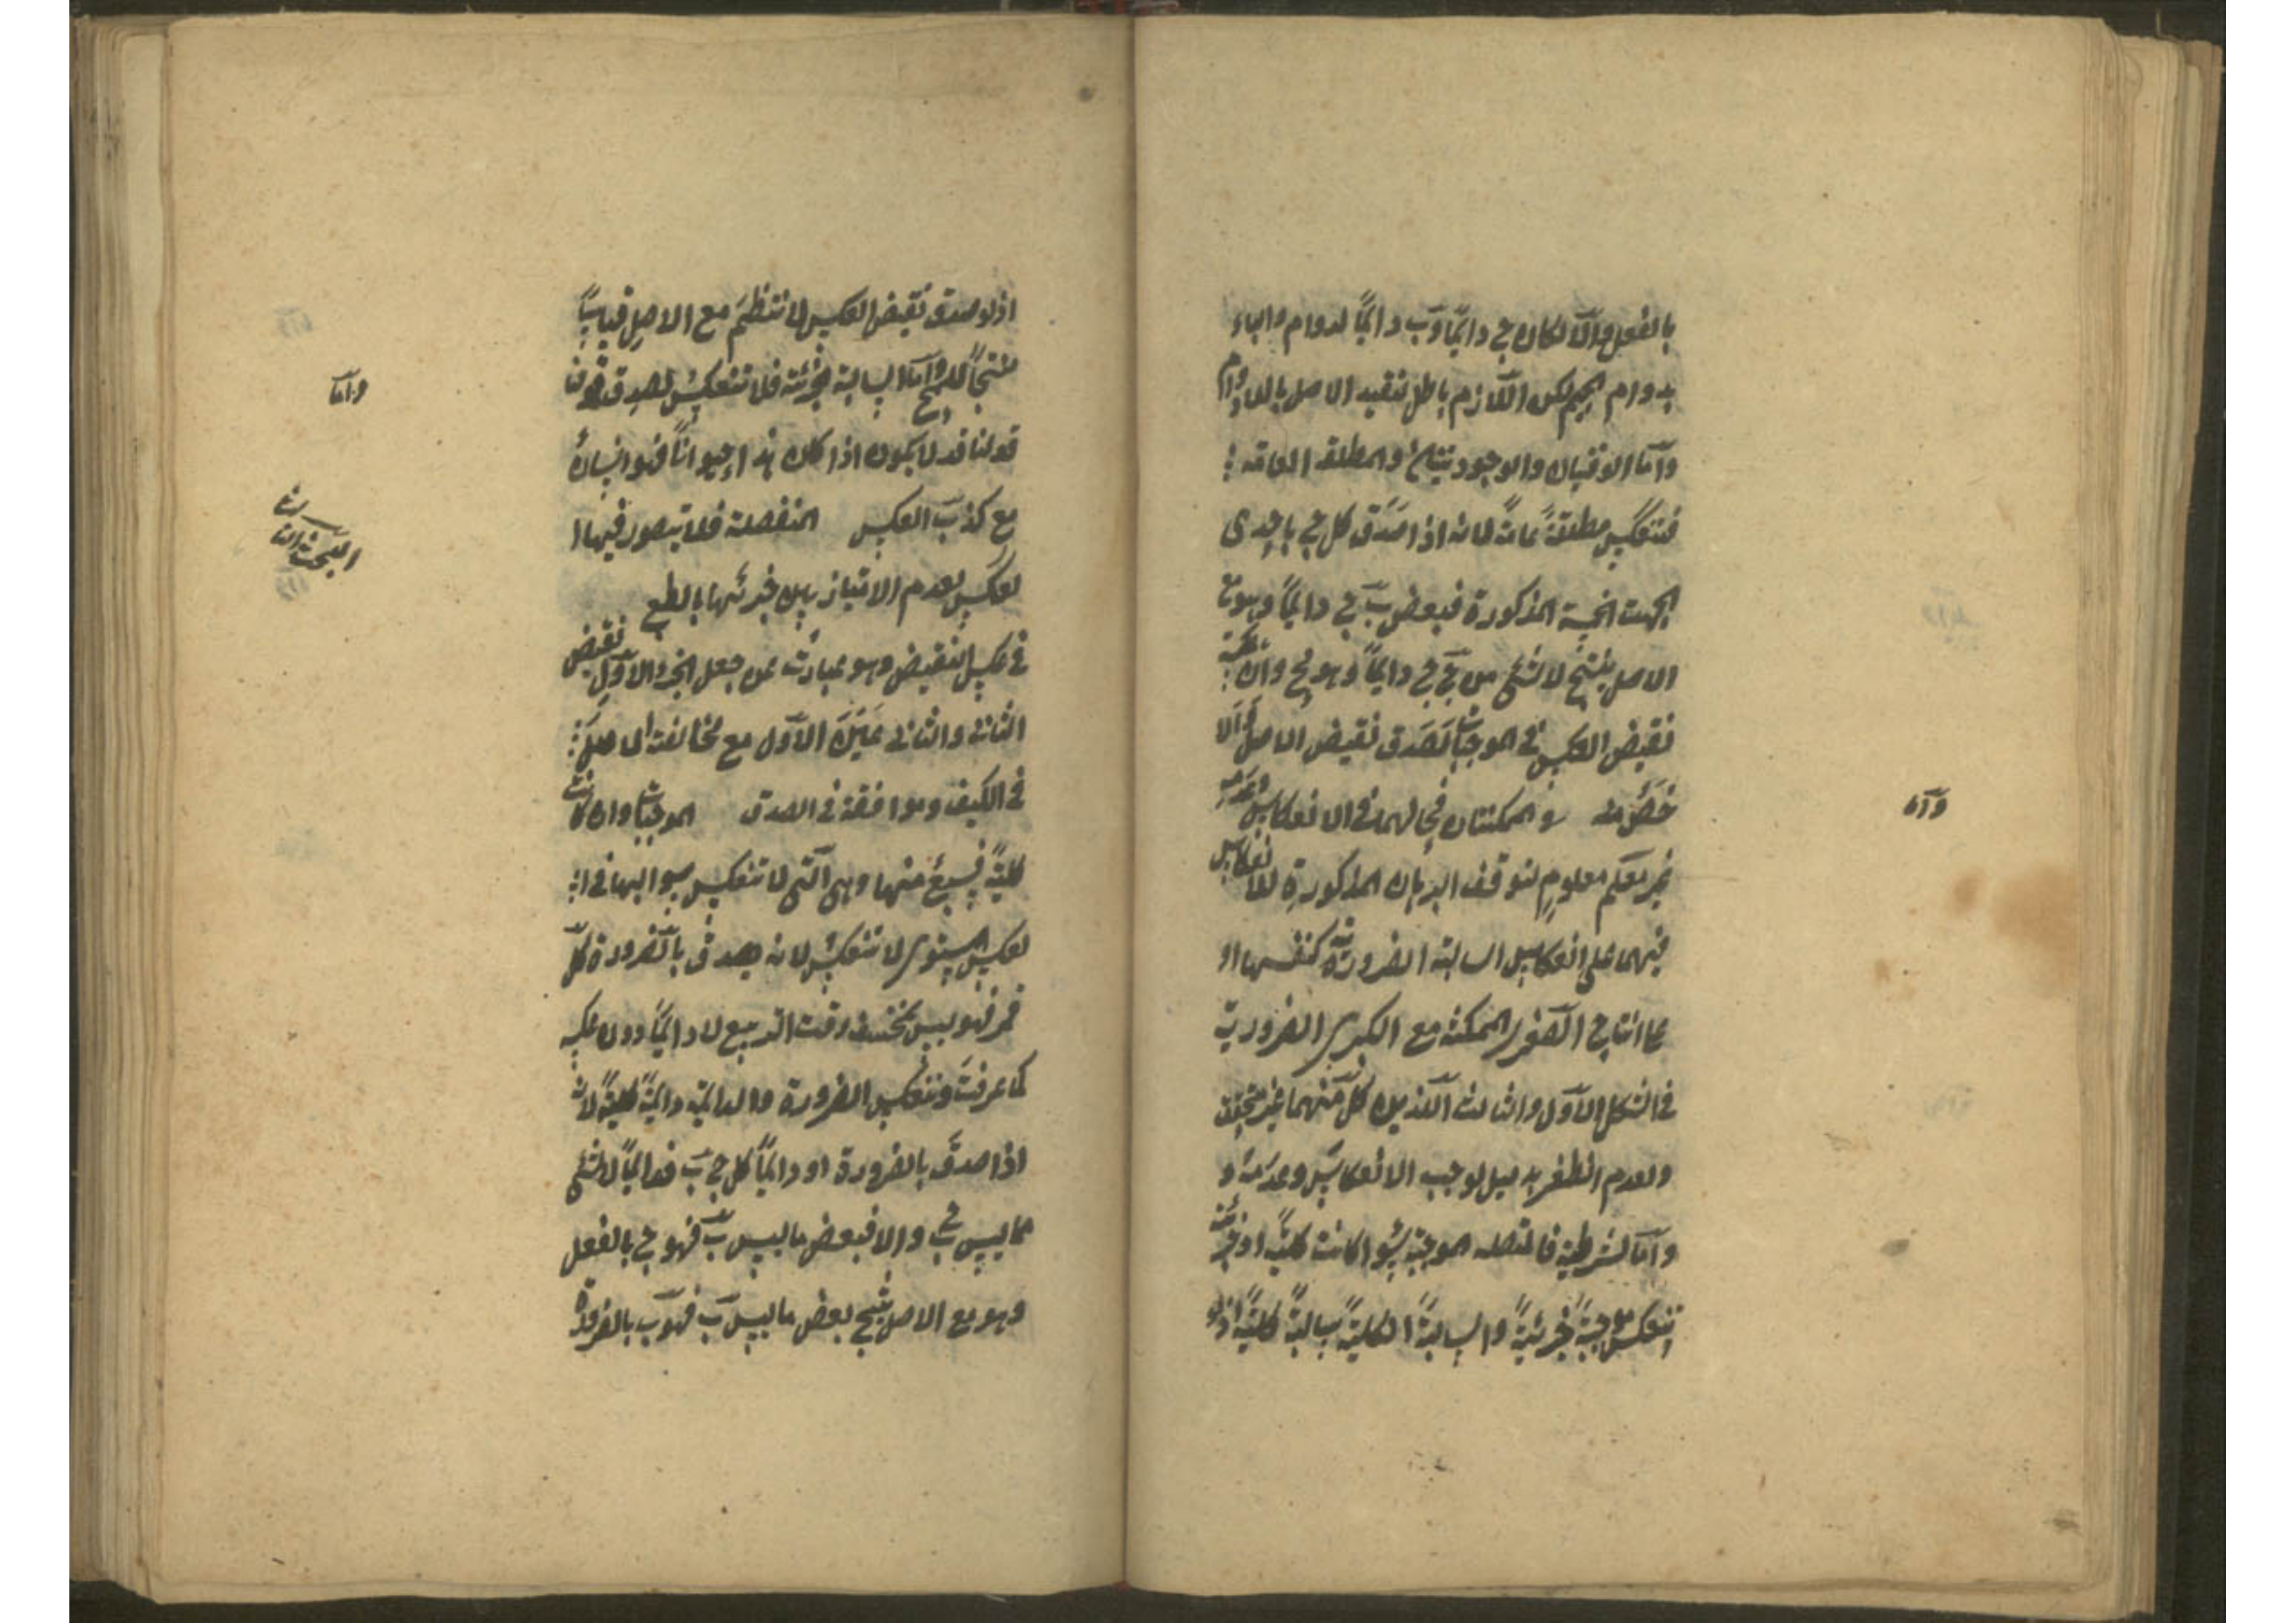 بالفعل والا لكان ج دائما وب دائما لدوام الباء
بدوام الجيم لكن اللازم باطل لتقييد الاصل باللادوام
وأما الوقتيان والوجوديتان والمطلقة العامة
فتنعكس مطلقة عامة لانه اذا صدق كل ج ب باحدى
الجهت الخمسة المذكورة فبعض ب ج دائما وهو مع
الاصل ينتج لا شئ من ج ج دائما وهو مح وان
نقيض العكس في الموجبات لصدق نقيض الاصل والا
خص منه و الممكنتان في لهما في الانعكاس وعدمه
غير معلوم لتوقف البرهان المذكورة للانعكاس
فيهما على انعكاس السالبة الضرورية كنفسها او
على انتاج الصغرى الممكنة مع الكبرى الضرورية
في الشكل الاول والثالث اللذين كل منهما غير متحقق
ولعدم الظفر بدليل يوجب الانعكاس وعدمه و
وأما الشرطية فالمتصله الموجبة سواء كانت كلية او جزئية
تنعكس موجبة جزئية والسالبة الكلية سالبة كلية
وأما
اذ لو صدق نقيض العكس لانتظم مع الاصل قياسا
منتجا للمح وأما السالبة الجزئية فلا تنعكس لصدق قولنا
قولنا قد لا يكون اذا كان هذا حيوانا فهو انسان
مع كذب العكس المنفصلة فلا يتصور فيها ا
لعكس لعدم الامتياز بين جزئيها بالطبع
في عكس النقيض وهو عبارت عن جعل الجزء الاول نقيض
الثاني والثاني عين الاول مع مخالفت الاصل
في الكيف وموافقة في الصدق الموجبات وان كانت
كلية فسبع منها وهي التي لا تنعكس سوالبها في ا
لعكس المستوى لا تنعكس لانه يصدق بالضرورة كل
قمر فهو ليس بمنخسف وقت التربيع لا دائما دون عكسه
كما عرفت وتنعكس الضرورة والدائمة دائمة كلية لانه
اذا صدق بالضرورة او دائما كل ج ب فدائما لا شئ
مما ليس ب ج والا فبعض ما ليس ب فهو ج بالفعل
وهو مع الاصل ينتج بعض ما ليس ب فهو ب بالضرورة
وأما
البحث الثالث